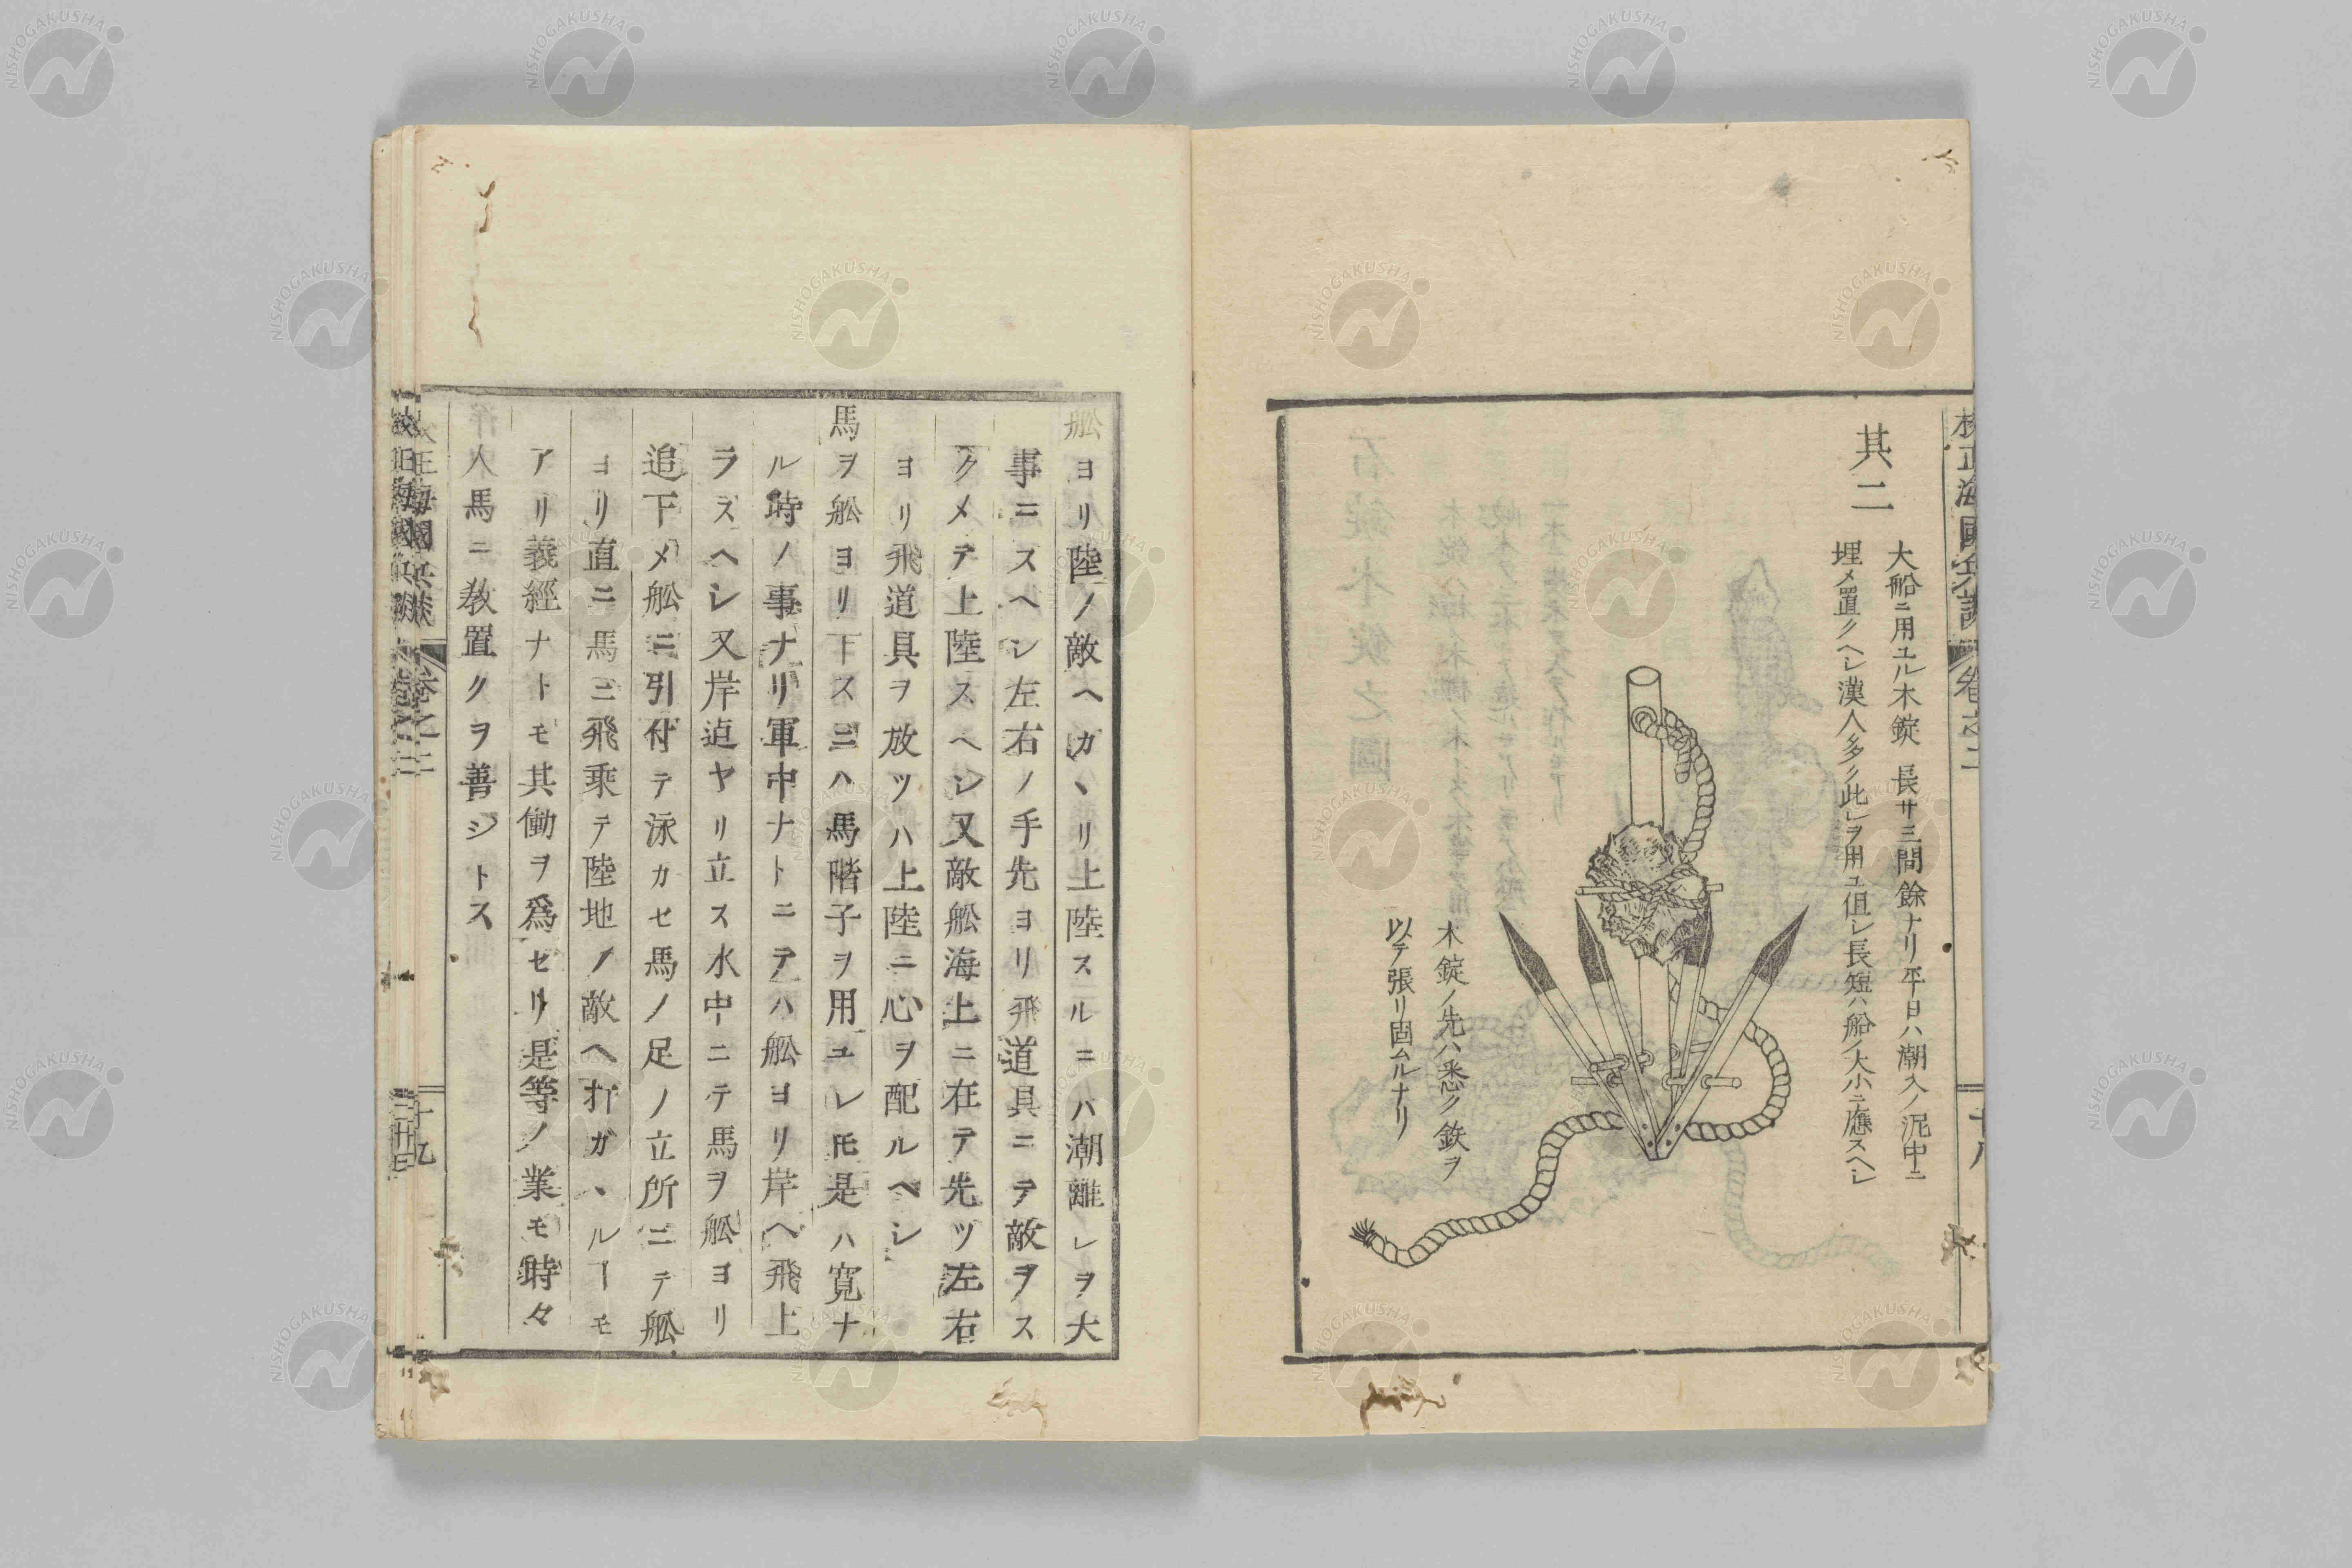 其二
大船ニ用ユル木錠 長サ三間餘ナリ平日ハ潮入ノ泥中ニ
埋メ置クヘシ漢人多ク此レヲ用ユ但シ長短ハ船ノ大小ニ應スヘシ
木錠ノ先ハ悉ク鉄ヲ
以テ張リ固ムルナリ
舩ヨリ陸ノ敵ヘカヽリ上陸スルニハ潮離レヲ大
事ニスヘシ左右ノ手先ヨリ飛道具ニテ敵ヲス
クメテ上陸スヘシ又敵舩海上ニ在テ先ツ左右
ヨリ飛道具ヲ放ツハ上陸ニ心ヲ配ルヘシ
馬ヲ舩ヨリ下スニハ馬階子ヲ用ユレ𪜈是ハ寛ナ
ル時ノ事ナリ軍中ナトニテハ舩ヨリ岸ヘ飛上
ラスヘシ又岸迠ヤリ立ス水中ニテ馬ヲ舩ヨリ
追下メ舩ニ引付テ泳カセ馬ノ足ノ立所ニテ舩
ヨリ直ニ馬ニ飛乗テ陸地ノ敵ヘ打ガヽルーモ
アリ義經ナトモ其働ヲ爲セリ是等ノ業モ時々
人馬ニ教置クヲ善シトス
NISHOGAKUSHA